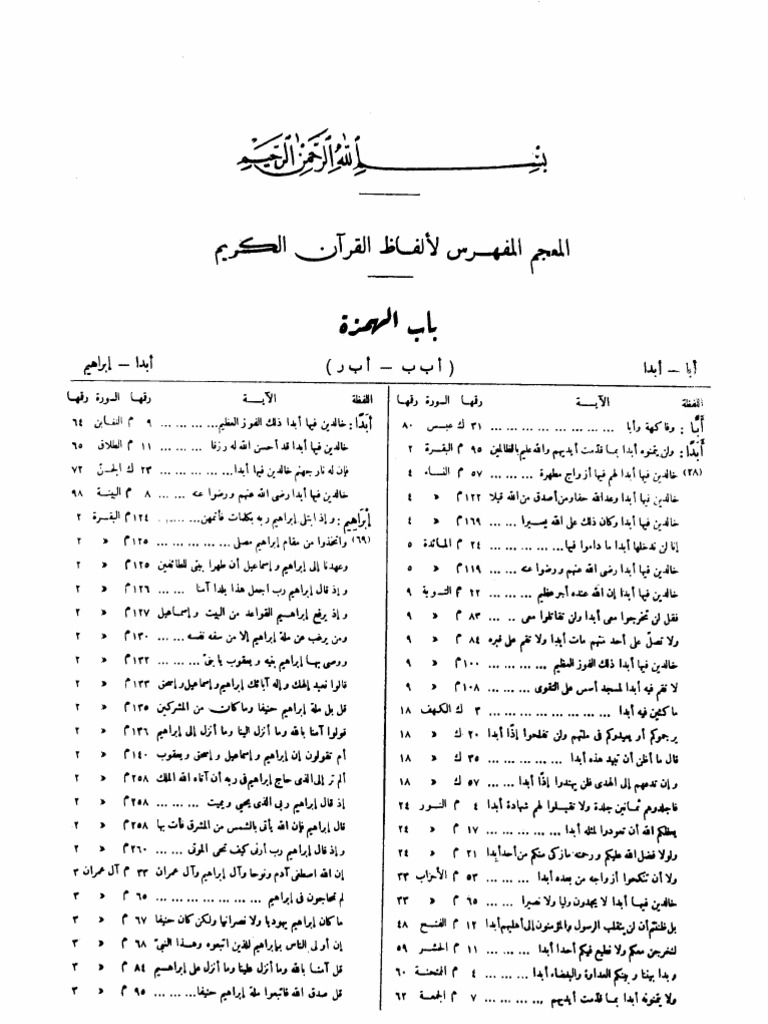 بسم الله الرحمن الرحيم
المعجم المفهرس لألفاظ القرآن الكريم
باب الهمزة
أبا – أبدا (أ ب ب – أ ب ر) أبدا – إبراهيم
اللفظة الآية رقها السورة رقها
أَبًّا : وفاكهة وأبا ... ... ... ... ... ... ٣١ ك عبس ٨٠
أَبَدًا : ولن يتمنوه أبدا بما قدّمت أيديهم والله عليم بالظالمين ٩٥ م البقرة ٢
(٢٨) خالدين فيها أبدا لهم فيها أزواج مطهرة ... ... ... ٥٧ م النساء ٤
خالدين فيها أبدا وعد الله حقا ومن أصدق من الله قيلا ١٢٢ م » ٤
خالدين فيها أبدا وكان ذلك على الله يسيرا ... ... ١٦٩ م » ٤
إنا لن ندخلها أبدا ما داموا فيها ... ... ... ... ٢٤ م المائدة ٥
خالدين فيها أبدا رضى الله عنهم ورضوا عنه ... ... ١١٩ م » ٥
خالدين فيها أبدا إن الله عنده أجر عظيم ... ... ... ٢٢ م التوبة ٩
فقل لن تخرجوا معى أبدا ولن تقاتلوا معى ... ... ٨٣ م » ٩
ولا تصلّ على أحد منهم مات أبدا ولا تقم على قبره ٨٤ م » ٩
خالدين فيها أبدا ذلك الفوز العظيم ... ... ... ١٠٠ م » ٩
لا تقم فيه أبدا لمسجد أسس على التقوى ... ... ١٠٨ م » ٩
ماكثين فيه أبدا ... ... ... ... ... ... ٣ ك الكهف ١٨
يرجموكم أو يعيدوكم فى ملتهم ولن تفلحوا إذًا أبدا ٢٠ ك » ١٨
قال ما أظن أن تبيد هذه أبدا ... ... ... ... ٣٥ ك » ١٨
وإن تدعهم إلى الهدى فلن يهتدوا إذًا أبدا ... ... ٥٧ ك » ١٨
فاجلدوهم ثمانين جلدة ولا تقبلوا لهم شهادة أبدا ٤ م النور ٢٤
يعظكم الله أن تعودوا لمثله أبدا ... ... ... ... ١٧ م » ٢٤
ولولا فضل الله عليكم ورحمته ما زكى منكم من أحد أبدا ٢١ م » ٢٤
ولا أن تنكحوا أزواجه من بعده أبدا ... ... ٥٣ م الأحزاب ٣٣
خالدين فيها أبدا لا يجدون وليا ولا نصيرا ... ... ٦٥ م » ٣٣
بل ظننتم أن لن ينقلب الرسول والمؤمنون إلى أهليهم أبدا ١٢ م الفتح ٤٨
لنخرجن معكم ولا نطيع فيكم أحدا أبدا ... ... ١١ م الحشر ٥٩
وبدا بيننا وبينكم العداوة والبغضاء أبدا ... ... ٤ م الممتحنة ٦٠
ولا يتمنونه أبدا بما قدّمت أيديهم ... ... ... ٧ م الجمعة ٦٢
اللفظة الآية رقها السورة رقها
أَبَدًا : خالدين فيها أبدا ذلك الفوز العظيم ... ... ... ٩ م التغابن ٦٤
خالدين فيها أبدا قد أحسن الله له رزقا ... ... ١١ م الطلاق ٦٥
فإن له نار جهنم خالدين فيها أبدا ... ... ... ٢٣ ك الجنّ ٧٢
خالدين فيها أبدا رضى الله عنهم ورضوا عنه ... ... ٨ م البينة ٩٨
إِبْرَاهِيم : وإذ ابتلى إبراهيم ربه بكلمات فأتمهن ... ... ١٢٤ م البقرة ٢
(٦٩) واتخذوا من مقام إبراهيم مصلى ... ... ... ١٢٥ م » ٢
وعهدنا إلى إبراهيم وإسماعيل أن طهرا بيتى للطائفين ١٢٥ م » ٢
وإذ قال إبراهيم رب اجعل هذا بلدا آمنا ... ... ١٢٦ م » ٢
وإذ يرفع إبراهيم القواعد من البيت وإسماعيل ١٢٧ م » ٢
ومن يرغب عن ملة إبراهيم إلا من سفه نفسه ... ١٣٠ م » ٢
ووصى بها إبراهيم بنيه ويعقوب يا بنىّ ... ... ١٣٢ م » ٢
قالوا نعبد إلهك وإله آبائك إبراهيم وإسماعيل وإسحق ١٣٣ م » ٢
قل بل ملة إبراهيم حنيفا وما كان من المشركين ١٣٥ م » ٢
قولوا آمنا بالله وما أنزل إلينا وما أنزل إلى إبراهيم ١٣٦ م » ٢
أم تقولون إن إبراهيم وإسماعيل وإسحق ويعقوب ١٤٠ م » ٢
ألم تر إلى الذى حاج إبراهيم فى ربه أن آتاه الله الملك ٢٥٨ م » ٢
إذ قال إبراهيم ربى الذى يحيى ويميت ... ... ٢٥٨ م » ٢
قال إبراهيم فإن الله يأتى بالشمس من المشرق فأت بها ٢٥٨ م » ٢
وإذ قال إبراهيم رب أرنى كيف تحى الموتى ... ٢٦٠ م » ٢
إن الله اصطفى آدم ونوحا وآل إبراهيم وآل عمران ٣٣ م آل عمران ٣
لم تحاجون فى إبراهيم ... ... ... ... ... ٦٥ م » ٣
ما كان إبراهيم يهوديا ولا نصرانيا ولكن كان حنيفا ٦٧ م » ٣
إن أولى الناس بإبراهيم للذين اتبعوه وهذا النبىّ ٦٨ م » ٣
قل آمنا بالله وما أنزل علينا وما أنزل على إبراهيم ٨٤ م » ٣
قل صدق الله فاتبعوا ملة إبراهيم حنيفا ... ... ٩٥ م » ٣